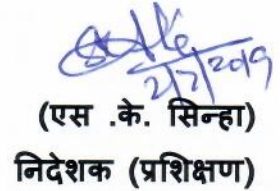 2/7/2019
(एस .के. सिन्हा)
निदेशक (प्रशिक्षण)